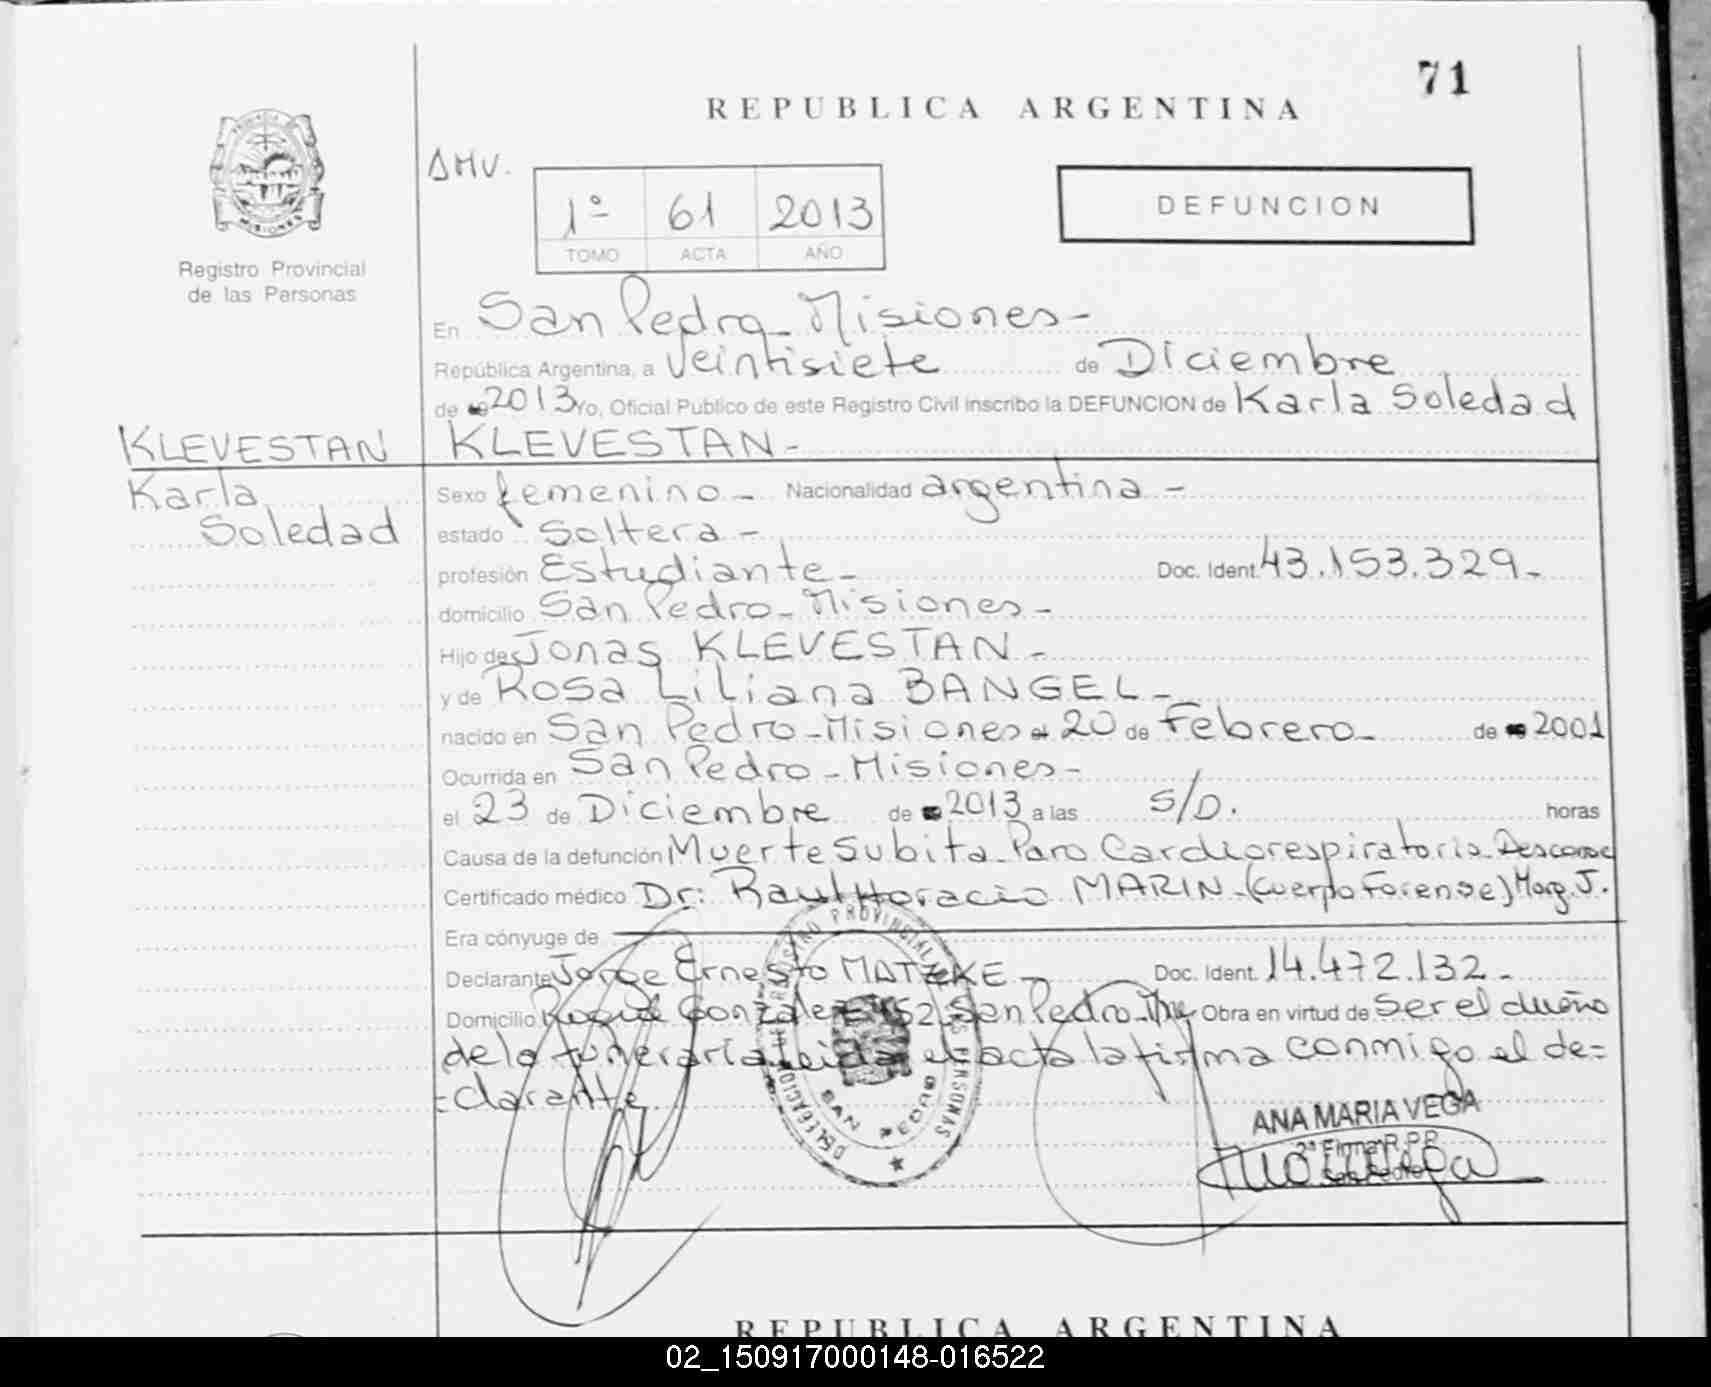 71
REPUBLICA ARGENTINA
PROVINCIA
MISIONES
Registro Provincial
de las Personas
DMV.
1º 61 2013
TOMO ACTA AÑO
DEFUNCION
En San Pedro - Misiones -
República Argentina, a veintisiete de Diciembre
de 2013 Yo, Oficial Publico de este Registro Civil inscribo la DEFUNCION de Karla Soledad
KLEVESTAN -
KLEVESTAN
Karla
Soledad
Sexo femenino - Nacionalidad argentina -
estado Soltera -
profesión Estudiante - Doc. Ident. 43.153.329 -
domicilio San Pedro - Misiones -
Hijo de Jonas KLEVESTAN -
y de Rosa Liliana BANGEL -
nacido en San Pedro - Misiones el 20 de Febrero - de 2001
Ocurrida en San Pedro - Misiones -
el 23 de Diciembre de 2013 a las S/D. horas
Causa de la defunción Muerte Subita - Paro Cardiorespiratorio -
Certificado médico Dr: Raul Horacio MARIN - (Cuerpo Forense)
Era cónyuge de
Declarante Jorge Ernesto MATZKE - Doc. Ident. 14.472.132 -
Domicilio Roque Gonzalez 452 San Pedro - Mnes Obra en virtud de Ser el dueño
de la funeraria leida el acta la firma conmigo el de=
=clarante
REGISTRO PROVINCIAL DE LAS PERSONAS
DELEGACION
SAN PEDRO
ANA MARIA VEGA
2ª Firma R.P.P.
San Pedro
REPUBLICA ARGENTINA
02_150917000148-016522